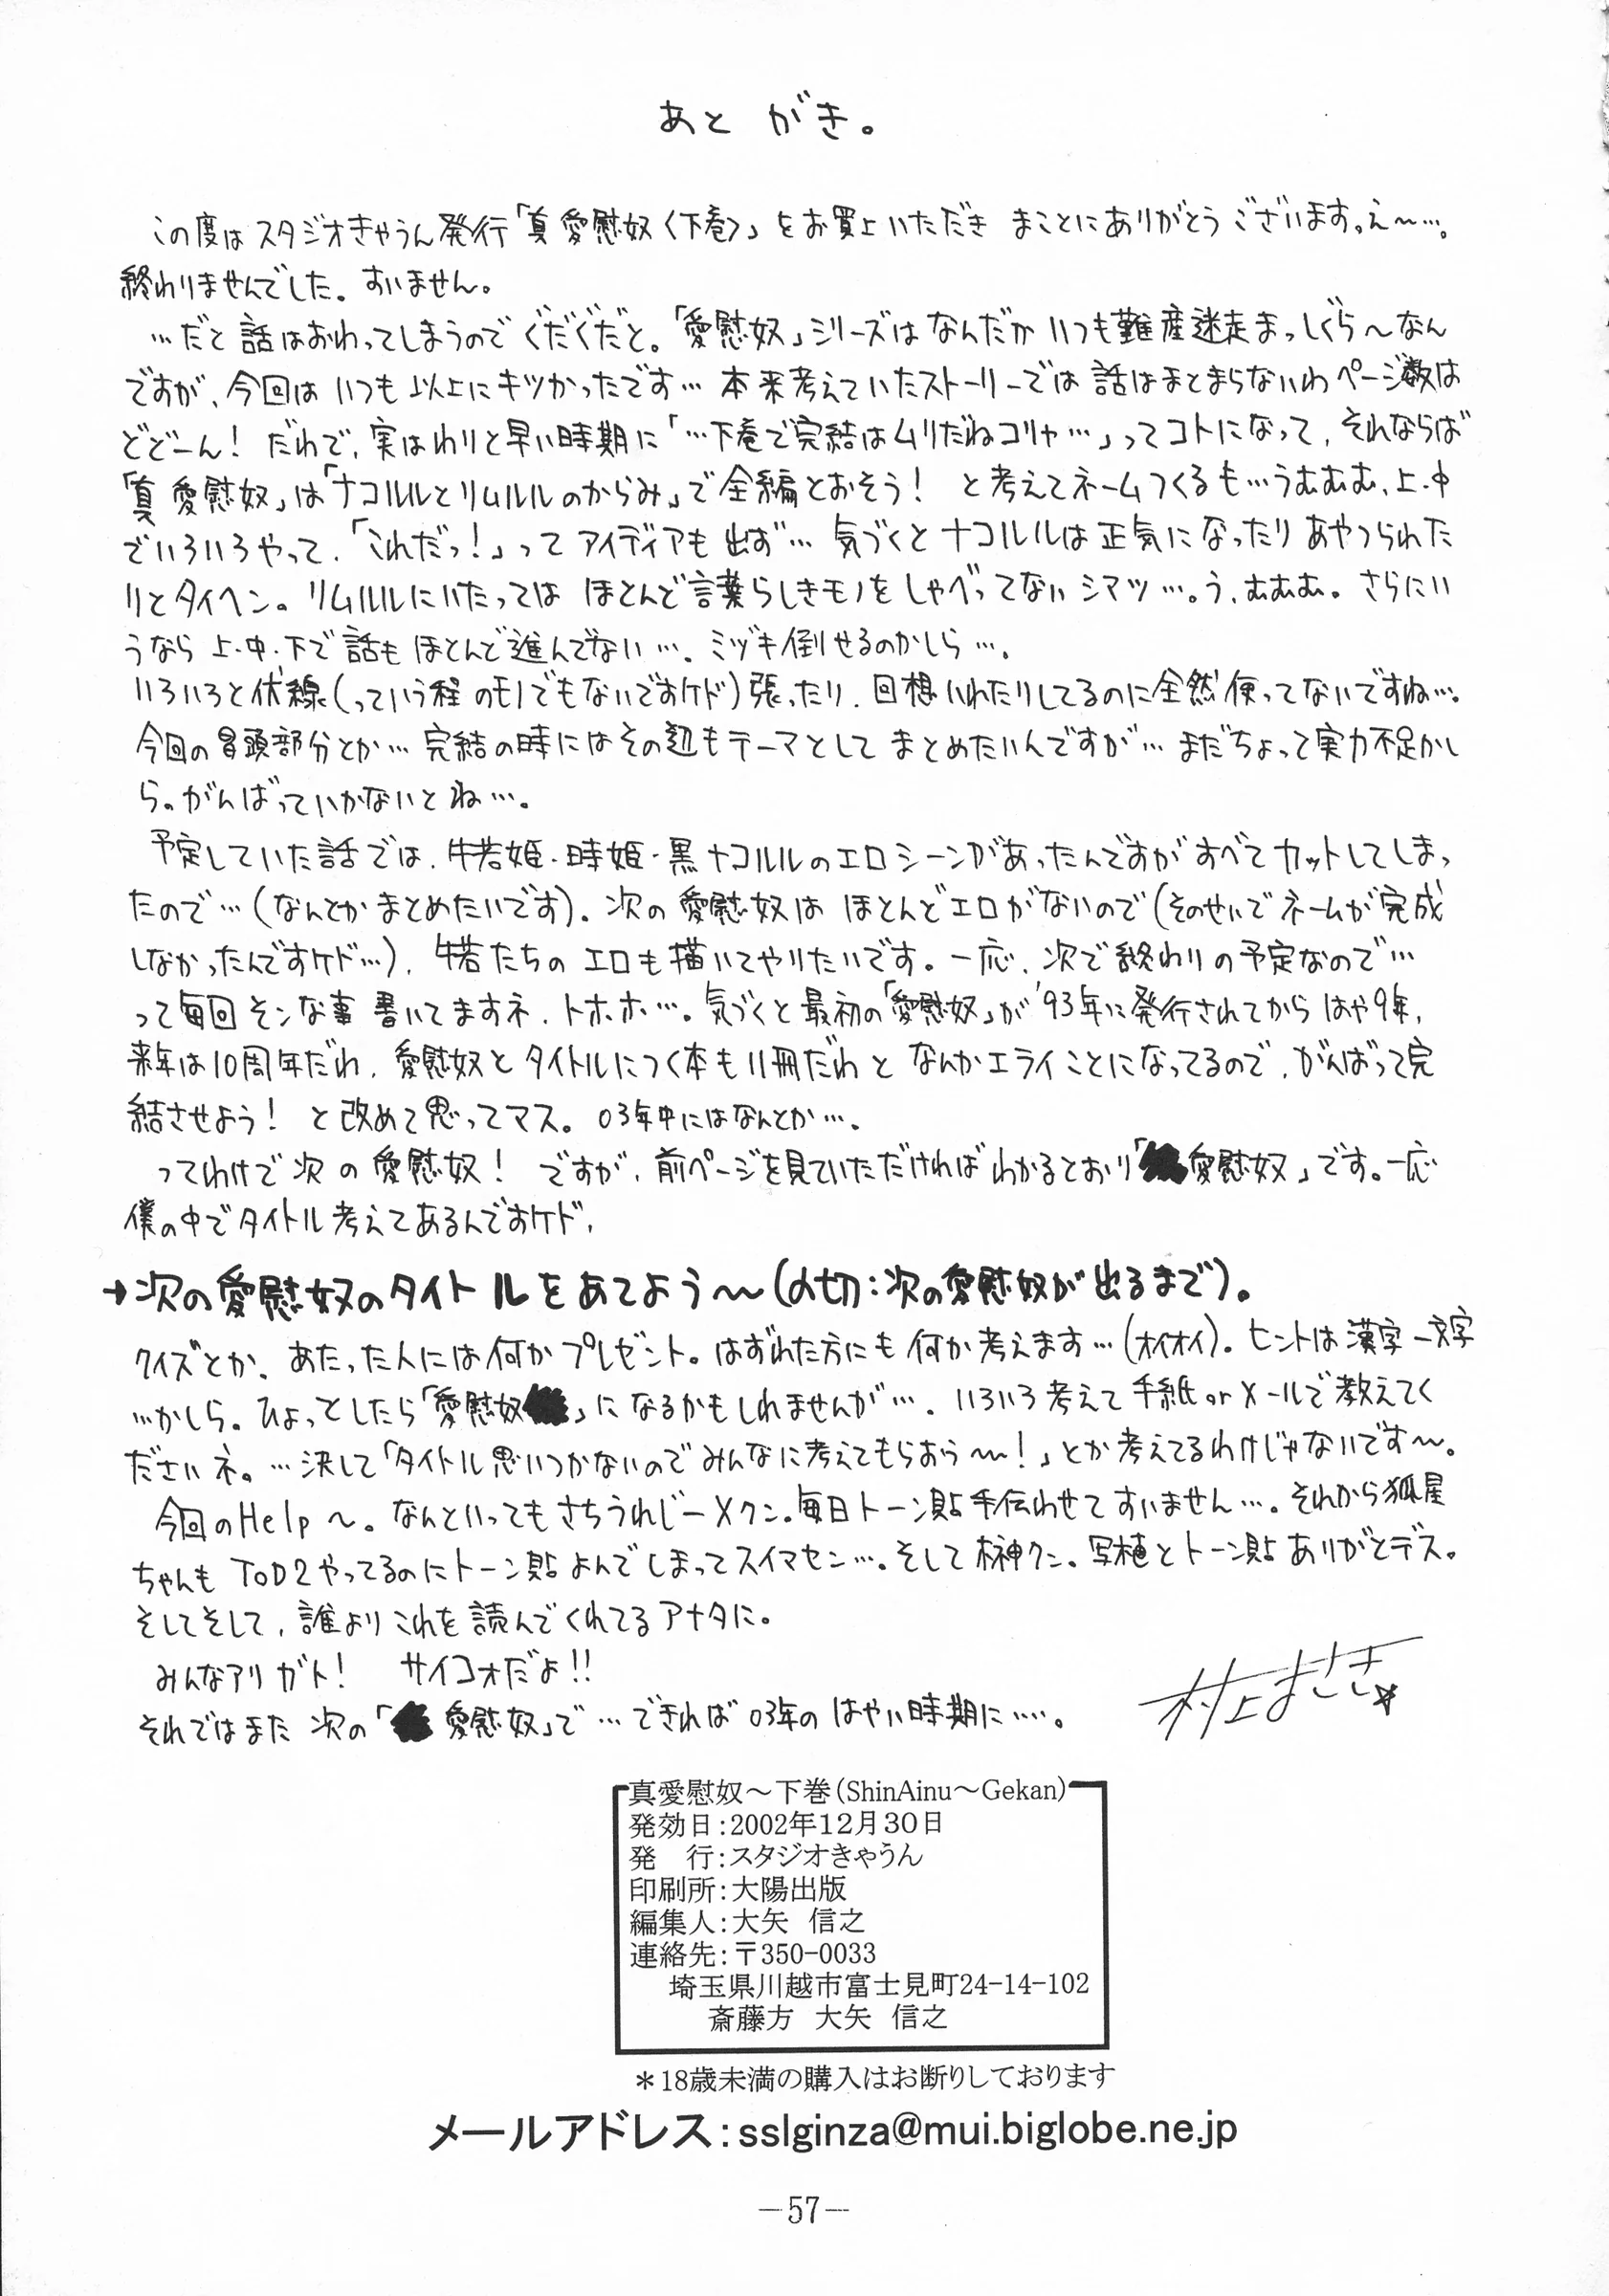 あとがき。
この度はスタジオきゃうん発行「真愛慰奴〈下巻〉」をお買上いただき まことにありがとうございます。え～…。
終わりませんでした。すいません。
…だと話はおわってしまうのでぐだぐだと。「愛慰奴」シリーズはなんだかいつも難産迷走まっしぐら～なん
ですが、今回はいつも以上にキツかったです… 本来考えていたストーリーでは話はまとまらないわページ数は
どどーん! だわで、実はわりと早い時期に「…下巻で完結はムリだねコリャ…」ってコトになって、それならば
「真愛慰奴」は「ナコルルとリムルルのからみ」で全編とおそう! と考えてネームつくるも…うむむむ、上・中
でいろいろやって、「これだっ!」ってアイディアも出ず… 気づくとナコルルは正気になったりあやつられた
りとタイヘン。リムルルにいたってはほとんど言葉らしきモノをしゃべってないシマツ…。う、むむむ。さらにい
うなら上・中・下で話もほとんど進んでない…。ミヅキ倒せるのかしら…。
いろいろと伏線(っていう程のモノでもないですケド)張ったり、回想いれたりしてるのに全然使ってないですね…。
今回の冒頭部分とか… 完結の時にはその辺もテーマとしてまとめたいんですが… まだちょって実力不足かし
ら。がんばっていかないとね…。
予定していた話では、牛若姫・時姫・黒ナコルルのエロシーンがあったんですがすべてカットしてしまっ
たので…(なんとかまとめたいです)。次の愛慰奴はほとんどエロがないので(そのせいでネームが完成
しなかったんですケド…)、牛若たちのエロも描いてやりたいです。一応、次で終わりの予定なので…
って毎回そンな事書いてますネ、トホホ…。気づくと最初の「愛慰奴」が'93年に発行されてからはや9年、
来年は10周年だわ、愛慰奴とタイトルにつく本も11冊だわとなんかエライことになってるので、がんばって完
結させよう! と改めて思ってマス。03年中にはなんとか…。
ってわけで次の愛慰奴! ですが、前ページを見ていただければわかるとおり「愛慰奴」です。一応
僕の中でタイトル考えてあるんですケド、
→次の愛慰奴のタイトルをあてよう～(〆切:次の愛慰奴が出るまで)。
クイズとか、あたった人には何かプレゼント。はずれた方にも何か考えます…(オイオイ)。ヒントは漢字一文字
…かしら。ひょっとしたら「愛慰奴」になるかもしれませんが…。いろいろ考えて手紙orメールで教えてく
ださいネ。…決して「タイトル思いつかないのでみんなに考えてもらおう～!」とか考えてるわけじゃないです～。
今回のHelp～。なんといってもさちうれじーメクン。毎日トーン貼手伝わせてすいません…。それから狐星
ちゃんもTOD2やってるのにトーン貼よんでしまってスイマセン…。そして榊クン。写植とトーン貼ありがとデス。
そしてそして、誰よりこれを読んでくれてるアナタに。
みんなアリガト! サイコォだよ!!
それではまた次の「愛慰奴」で…できれば03年のはやい時期に….。
村上まさき
真愛慰奴～下巻(ShinAinu～Gekan)
発効日:2002年12月30日
発　行:スタジオきゃうん
印刷所:大陽出版
編集人:大矢　信之
連絡先:〒350-0033
埼玉県川越市富士見町24-14-102
斎藤方　大矢　信之
＊18歳未満の購入はお断りしております
メールアドレス:sslginza@mui.biglobe.ne.jp
—57—